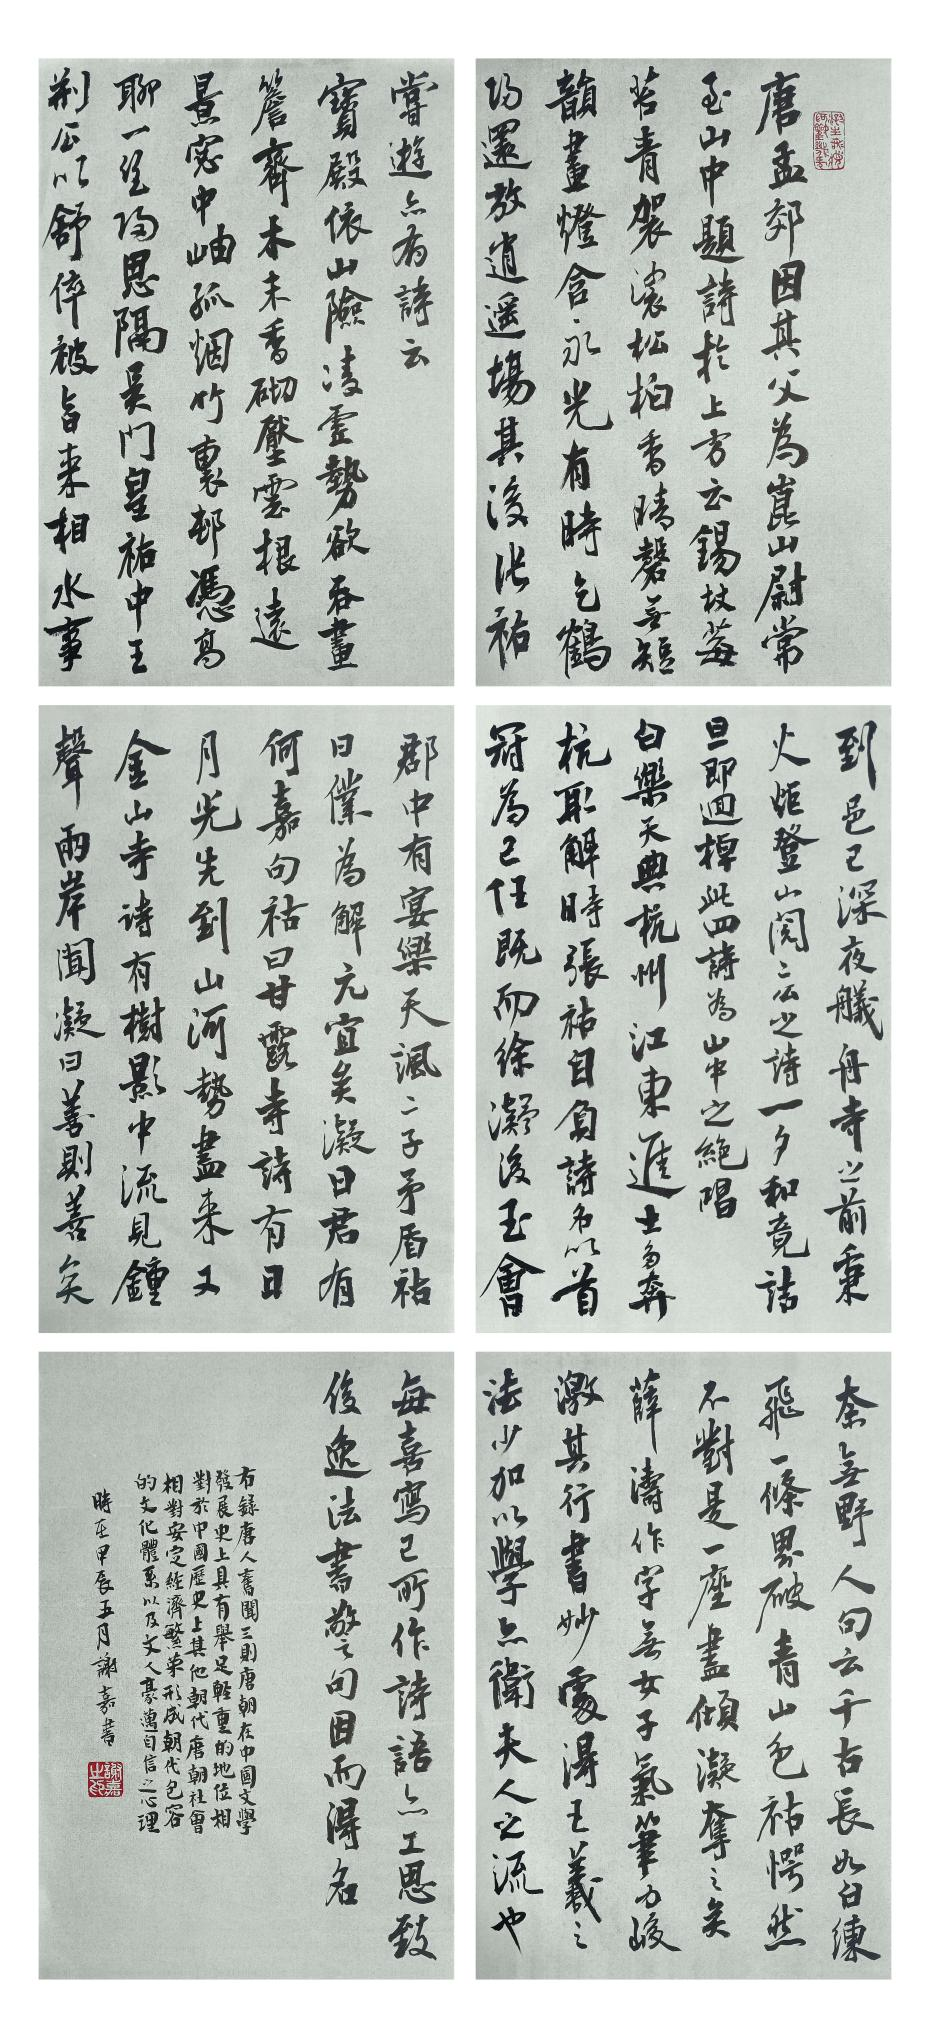 唐孟郊因其父為崑山尉常
至山中題詩於上方云錫杖莓
苔青袈裟松柏香晴磬無短
韻晝燈含永光有時乞鶴
歸還放逍遙場其後張祜
嘗遊亦有詩云
寶殿依山險凌雲勢欲吞畫
簷齊木末香砌壓雲根遠
景窓中岫孤烟竹裏邨憑高
聊一望歸思隔吳門皇祐中王
荆公以舒倅被旨来相水事
到邑已深夜艤舟寺之前秉
火炬登山閱二公之詩一夕和竟詰
旦即迴棹此四詩為山中之絶唱
白樂天典杭州江東進士多奔
杭取解時張祜自負詩名以首
冠為己任既而徐凝後至會
郡中有宴樂天諷二子矛盾祜
曰僕為解元宜矣凝曰君有
何嘉句祜曰甘露寺詩有日
月光先到山河勢盡来又
金山寺詩有樹影中流見鐘
聲兩岸聞凝曰善則善矣
奈無野人句云千古長如白練
飛一條界破青山色祜愕然
不對是一座盡傾凝奪之矣
薛濤作字無女子氣筆力峻
激其行書妙處得王羲之
法少加以學亦衛夫人之流也
每喜寫己所作詩語亦工思致
俊逸法書警句因而得名
右録唐人舊聞三則唐朝在中國文學
發展史上具有舉足輕重的地位相
對於中國歷史上其他朝代唐朝社會
相對安定經濟繁榮形成朝代包容
的文化體系以及文人豪邁自信之心理
時在甲辰五月謝嘉書
謝嘉之印